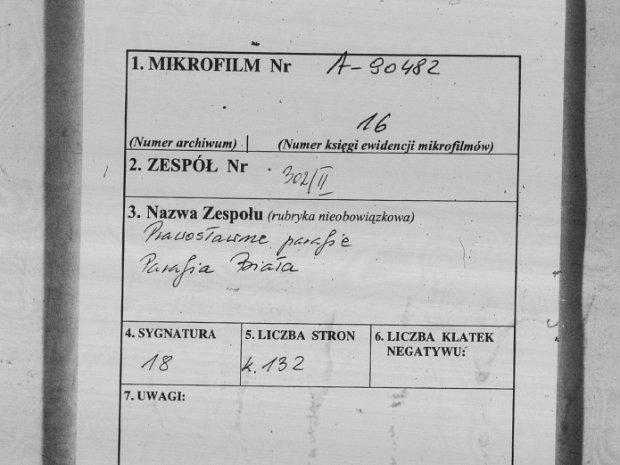 1. MIKROFILM Nr A-90482
16
(Numer archiwum) (Numer księgi ewidencji mikrofilmów)
2. ZESPÓŁ Nr 302/II
3. Nazwa Zespołu (rubryka nieobowiązkowa)
Prawosławne parafie
Parafia Biała
4. SYGNATURA 5. LICZBA STRON 6. LICZBA KLATEK
NEGATYWU:
18 k. 132
7. UWAGI: